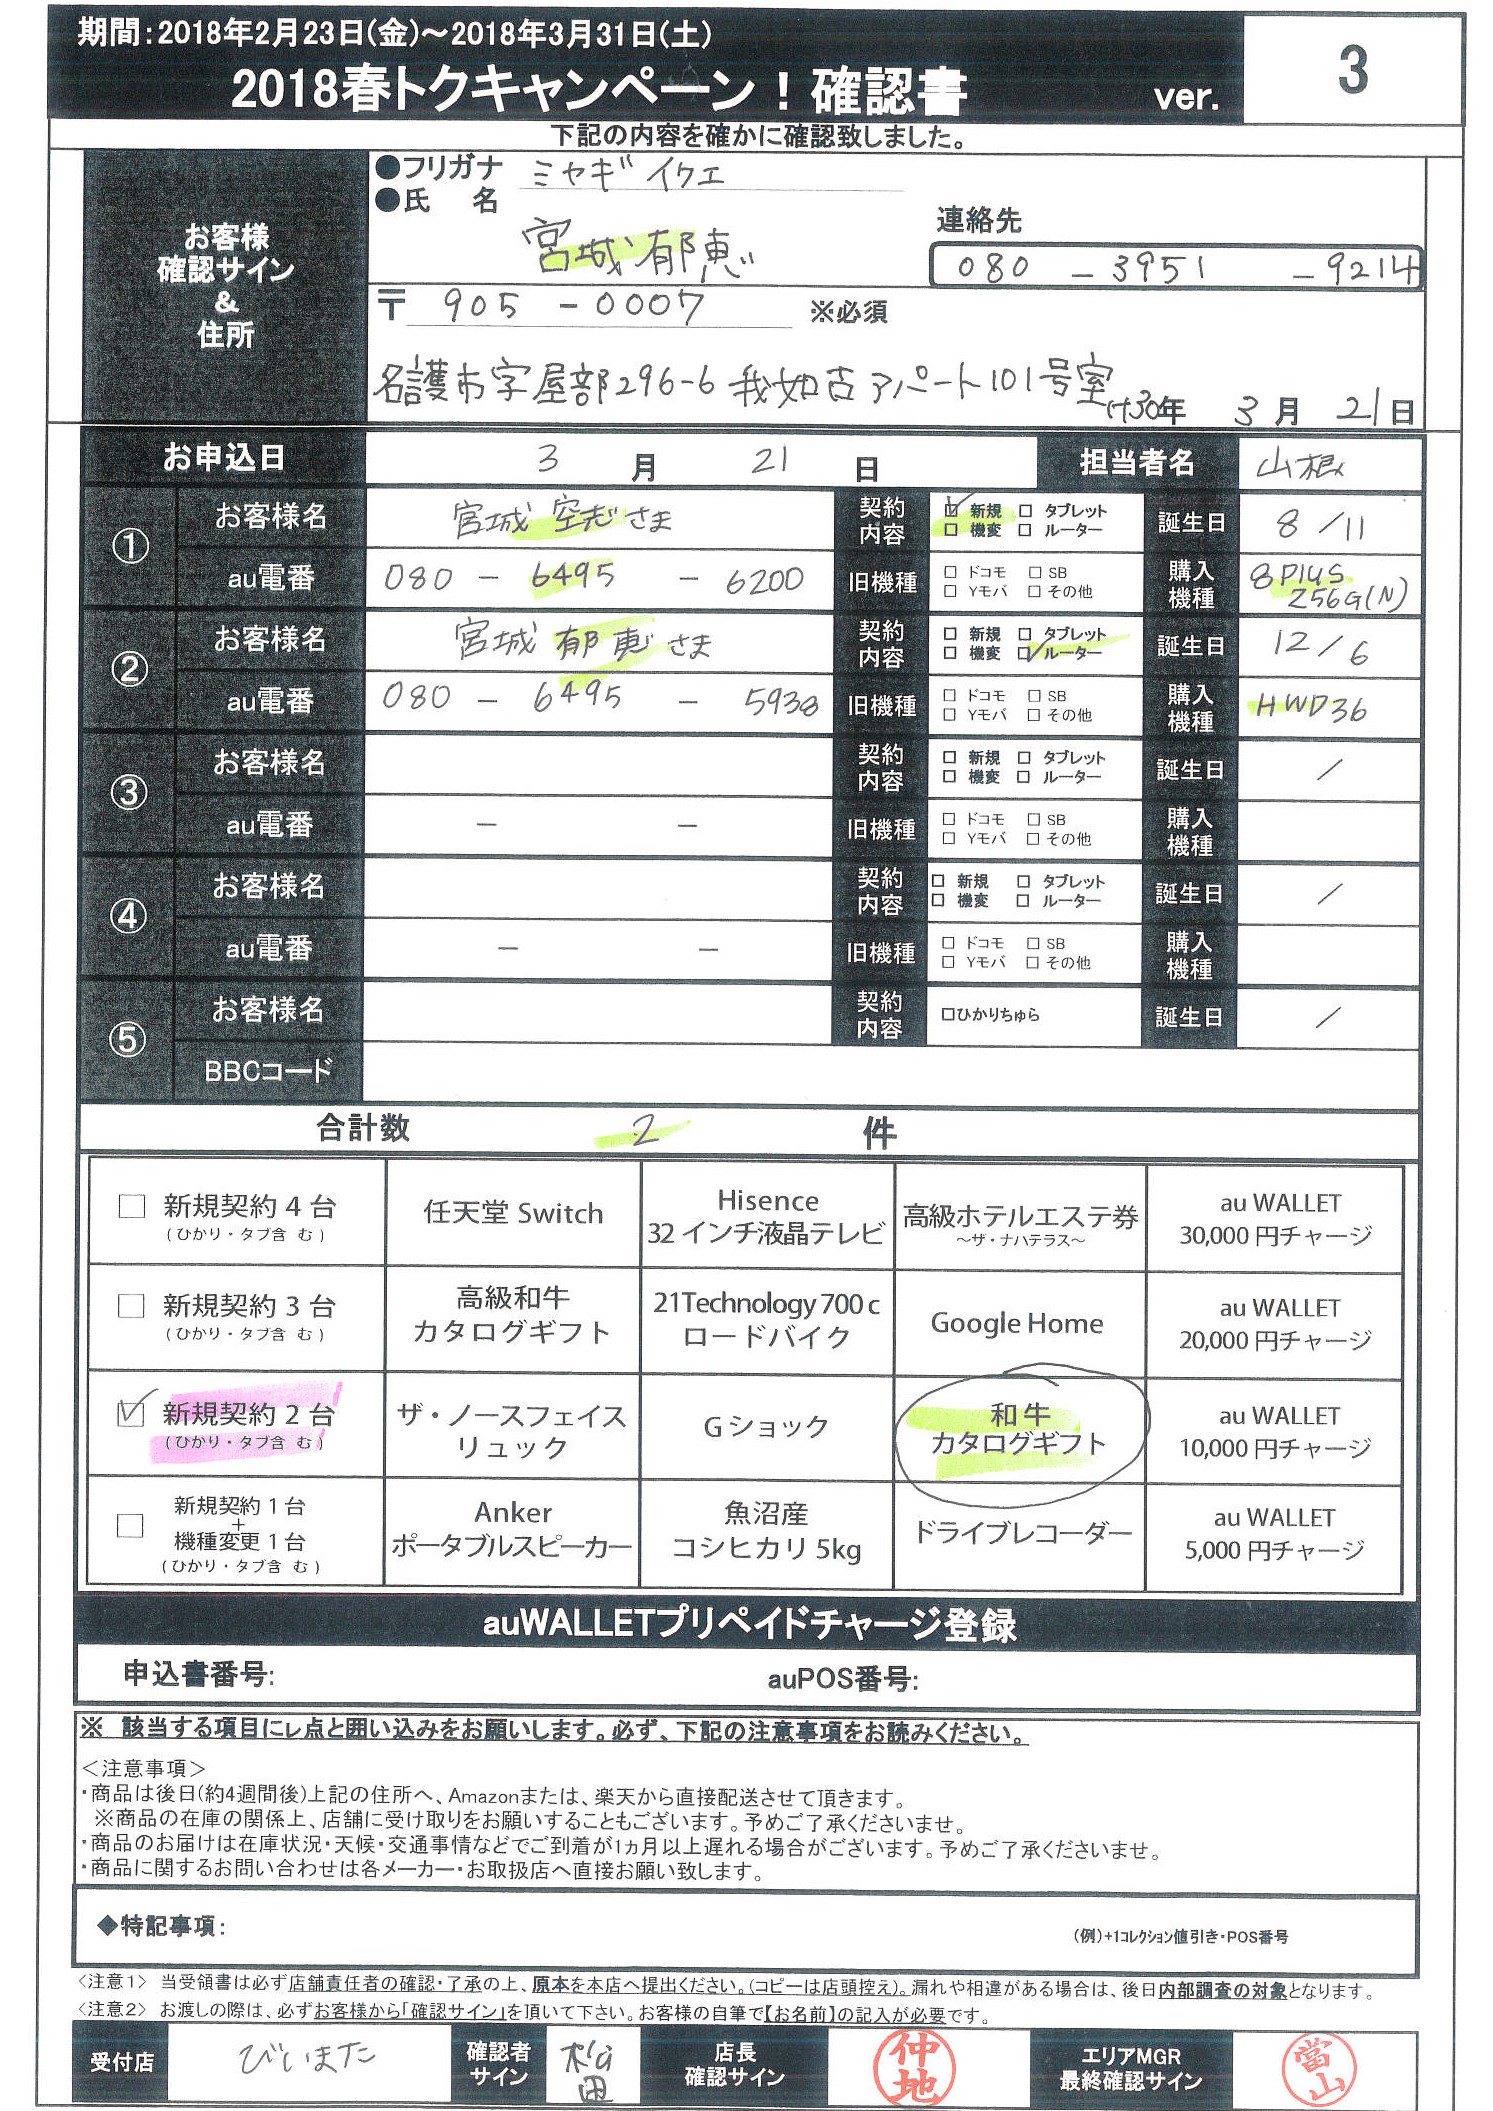 期間:2018年2月23日(金)～2018年3月31日(土)
2018春トクキャンペーン！確認書 ver. 3
下記の内容を確かに確認致しました。
お客様
確認サイン
&
住所
●フリガナ ミヤギ イクエ
●氏 名 宮城 郁恵
連絡先
080 - 3951 - 9214
〒 905 - 0007 ※必須
名護市字屋部296-6 我如古アパート101号室
H30年 3月 21日
お申込日 3月 21日 担当者名 山根
① お客様名 宮城 空志 さま 契約内容 ☑ 新規 □ タブレット □ 機変 □ ルーター 誕生日 8/11
au電番 080 - 6495 - 6200 旧機種 □ ドコモ □ SB □ Yモバ □ その他 購入機種 8Plus 256G(N)
② お客様名 宮城 郁恵 さま 契約内容 □ 新規 □ タブレット □ 機変 ☑ ルーター 誕生日 12/6
au電番 080 - 6495 - 5938 旧機種 □ ドコモ □ SB □ Yモバ □ その他 購入機種 HWD36
③ お客様名 契約内容 □ 新規 □ タブレット □ 機変 □ ルーター 誕生日 /
au電番 - - 旧機種 □ ドコモ □ SB □ Yモバ □ その他 購入機種
④ お客様名 契約内容 □ 新規 □ タブレット □ 機変 □ ルーター 誕生日 /
au電番 - - 旧機種 □ ドコモ □ SB □ Yモバ □ その他 購入機種
⑤ お客様名 契約内容 □ひかりちゅら 誕生日 /
BBCコード
合計数 2 件
□ 新規契約4台 (ひかり・タブ含 む) 任天堂 Switch Hisence 32インチ液晶テレビ 高級ホテルエステ券 ～ザ・ナハテラス～ au WALLET 30,000円チャージ
□ 新規契約3台 (ひかり・タブ含 む) 高級和牛 カタログギフト 21Technology 700c ロードバイク Google Home au WALLET 20,000円チャージ
☑ 新規契約2台 (ひかり・タブ含 む) ザ・ノースフェイス リュック Gショック 和牛 カタログギフト au WALLET 10,000円チャージ
□ 新規契約1台 + 機種変更1台 (ひかり・タブ含 む) Anker ポータブルスピーカー 魚沼産 コシヒカリ 5kg ドライブレコーダー au WALLET 5,000円チャージ
auWALLETプリペイドチャージ登録
申込書番号: auPOS番号:
※ 該当する項目にレ点と囲い込みをお願いします。必ず、下記の注意事項をお読みください。
＜注意事項＞
・商品は後日(約4週間後)上記の住所へ、Amazonまたは、楽天から直接配送させて頂きます。
※商品の在庫の関係上、店舗に受け取りをお願いすることもございます。予めご了承くださいませ。
・商品のお届けは在庫状況・天候・交通事情などでご到着が1ヵ月以上遅れる場合がございます。予めご了承くださいませ。
・商品に関するお問い合わせは各メーカー・お取扱店へ直接お願い致します。
◆特記事項: (例)+1コレクション値引き・POS番号
＜注意1＞ 当受領書は必ず店舗責任者の確認・了承の上、原本を本店へ提出ください。(コピーは店頭控え)。漏れや相違がある場合は、後日内部調査の対象となります。
＜注意2＞ お渡しの際は、必ずお客様から「確認サイン」を頂いて下さい。お客様の自筆で【お名前】の記入が必要です。
受付店 びいまた 確認者サイン 松田 店長確認サイン 仲地 エリアMGR最終確認サイン 當山